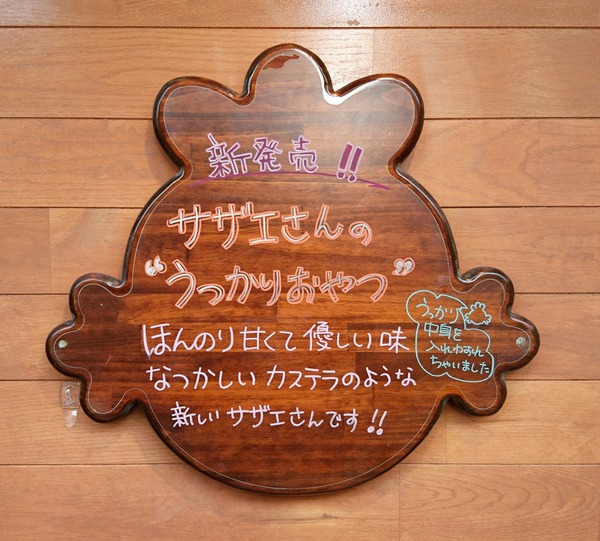 新発売!!
サザエさんの
“うっかりおやつ”
ほんのり甘くて優しい味
なつかしいカステラのような
新しいサザエさんです!!
うっかり
中身を
入れわすれ
ちゃいました